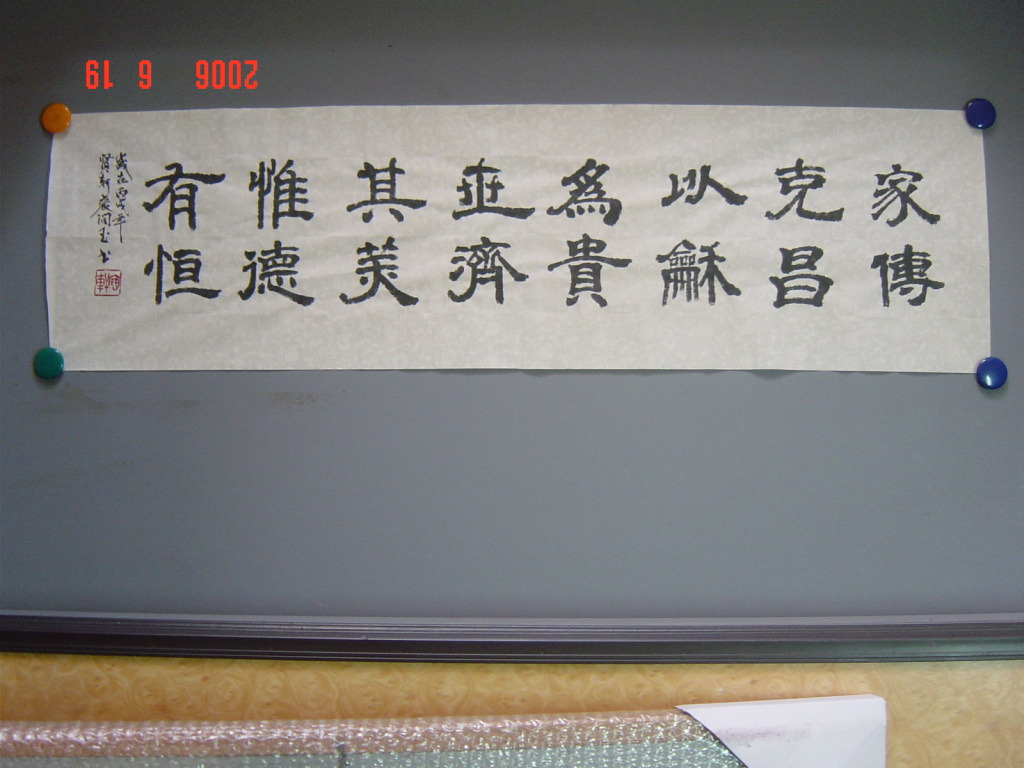 家傳
克昌
以龢
為貴
並濟
其美
惟德
有恒
歲在丙戌年
2006 6 19